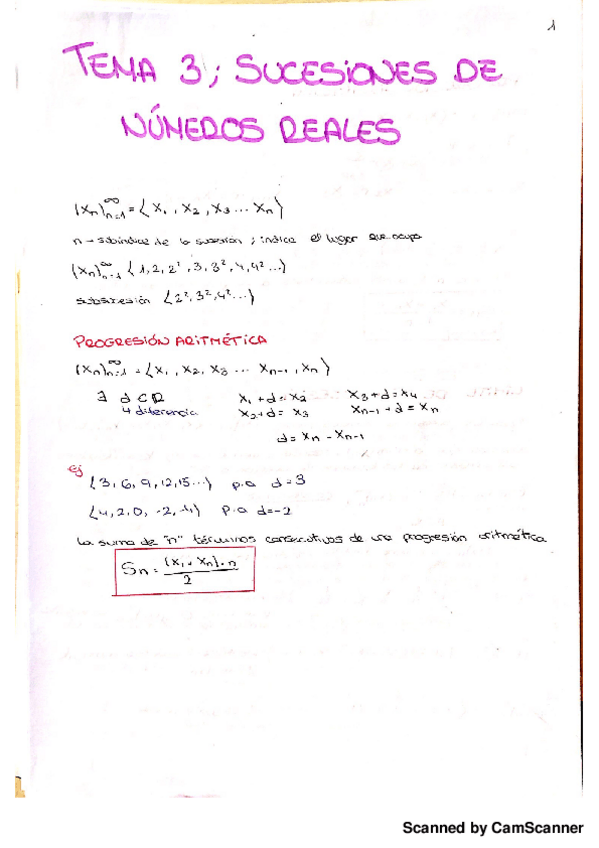 1
TEMA 3; SUCESIONES DE
NÚMEROS REALES
(xn)∞n=1 = (x1, x2, x3 ... xn)
n → subíndice de la sucesión; indica el lugar que ocupa
(xn)∞n=1 (1, 2, 2², 3, 3², 4, 4² ...)
subsucesión (2², 3², 4² ...)
PROGRESIÓN ARITMÉTICA
(xn)∞n=1 = (x1, x2, x3 ... xn-1, xn)
∃ d ⊂ ℝ x1 + d = x2 x3 + d = x4
↳ diferencia x2 + d = x3 xn-1 + d = xn
d = xn - xn-1
ej
(3, 6, 9, 12, 15...) p.a d = 3
(4, 2, 0, -2, -4) p.a d = -2
La suma de "n" términos consecutivos de una progresión aritmética
Sn = (x1 + xn) · n / 2
Scanned by CamScanner